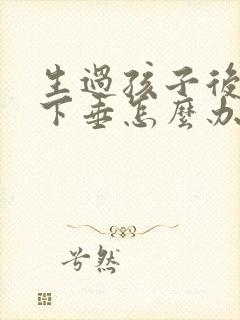 生過孩子後
下垂怎麼办
兮然